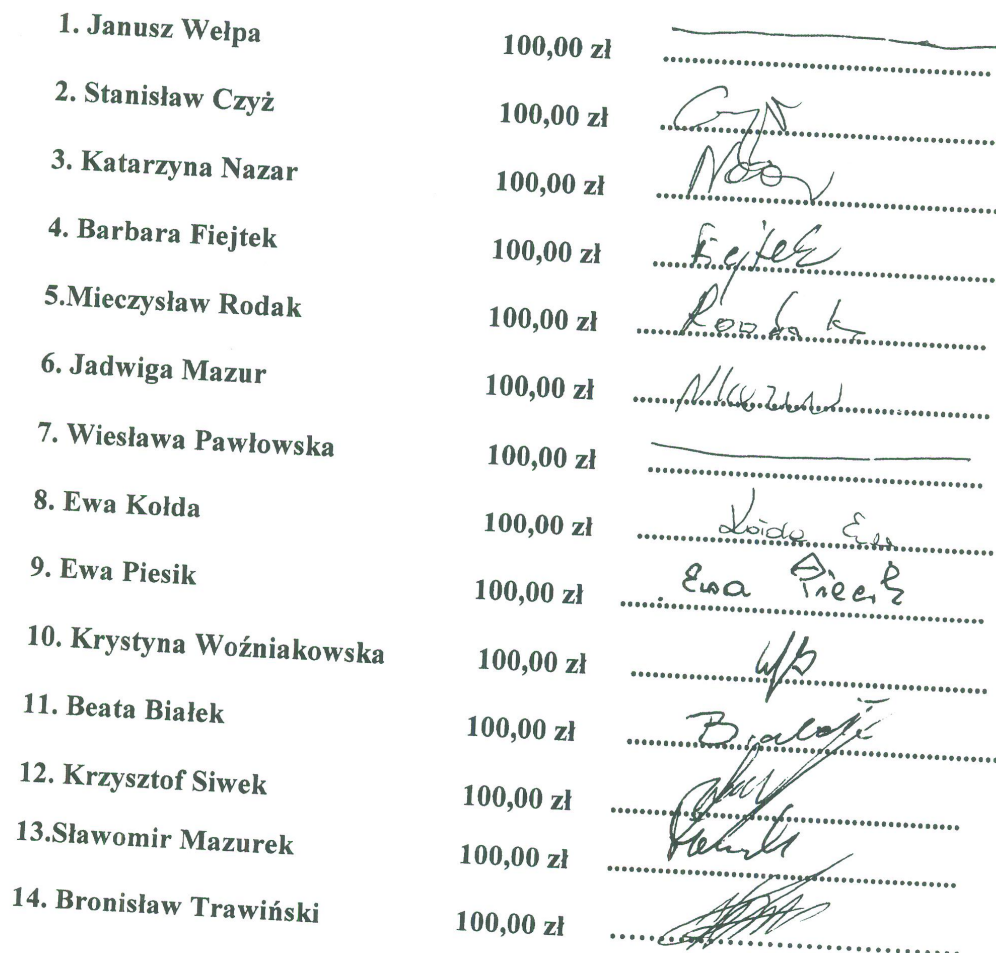 1. Janusz Wełpa 100,00 zł
2. Stanisław Czyż 100,00 zł Czyż
3. Katarzyna Nazar 100,00 zł
4. Barbara Fiejtek 100,00 zł Fiejtek
5.Mieczysław Rodak 100,00 zł Rodak
6. Jadwiga Mazur 100,00 zł Mazur
7. Wiesława Pawłowska 100,00 zł
8. Ewa Kołda 100,00 zł Kołda Ewa
9. Ewa Piesik 100,00 zł Ewa Piesik
10. Krystyna Woźniakowska 100,00 zł
11. Beata Białek 100,00 zł Białek
12. Krzysztof Siwek 100,00 zł
13.Sławomir Mazurek 100,00 zł
14. Bronisław Trawiński 100,00 zł